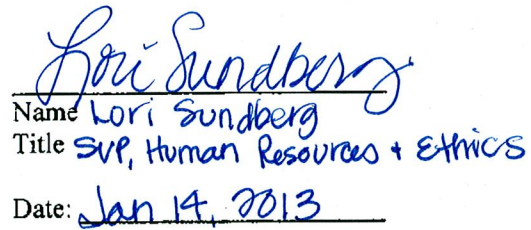 Lori Sundberg
Name Lori Sundberg
Title SVP, Human Resources + Ethics
Date: Jan 14, 2013